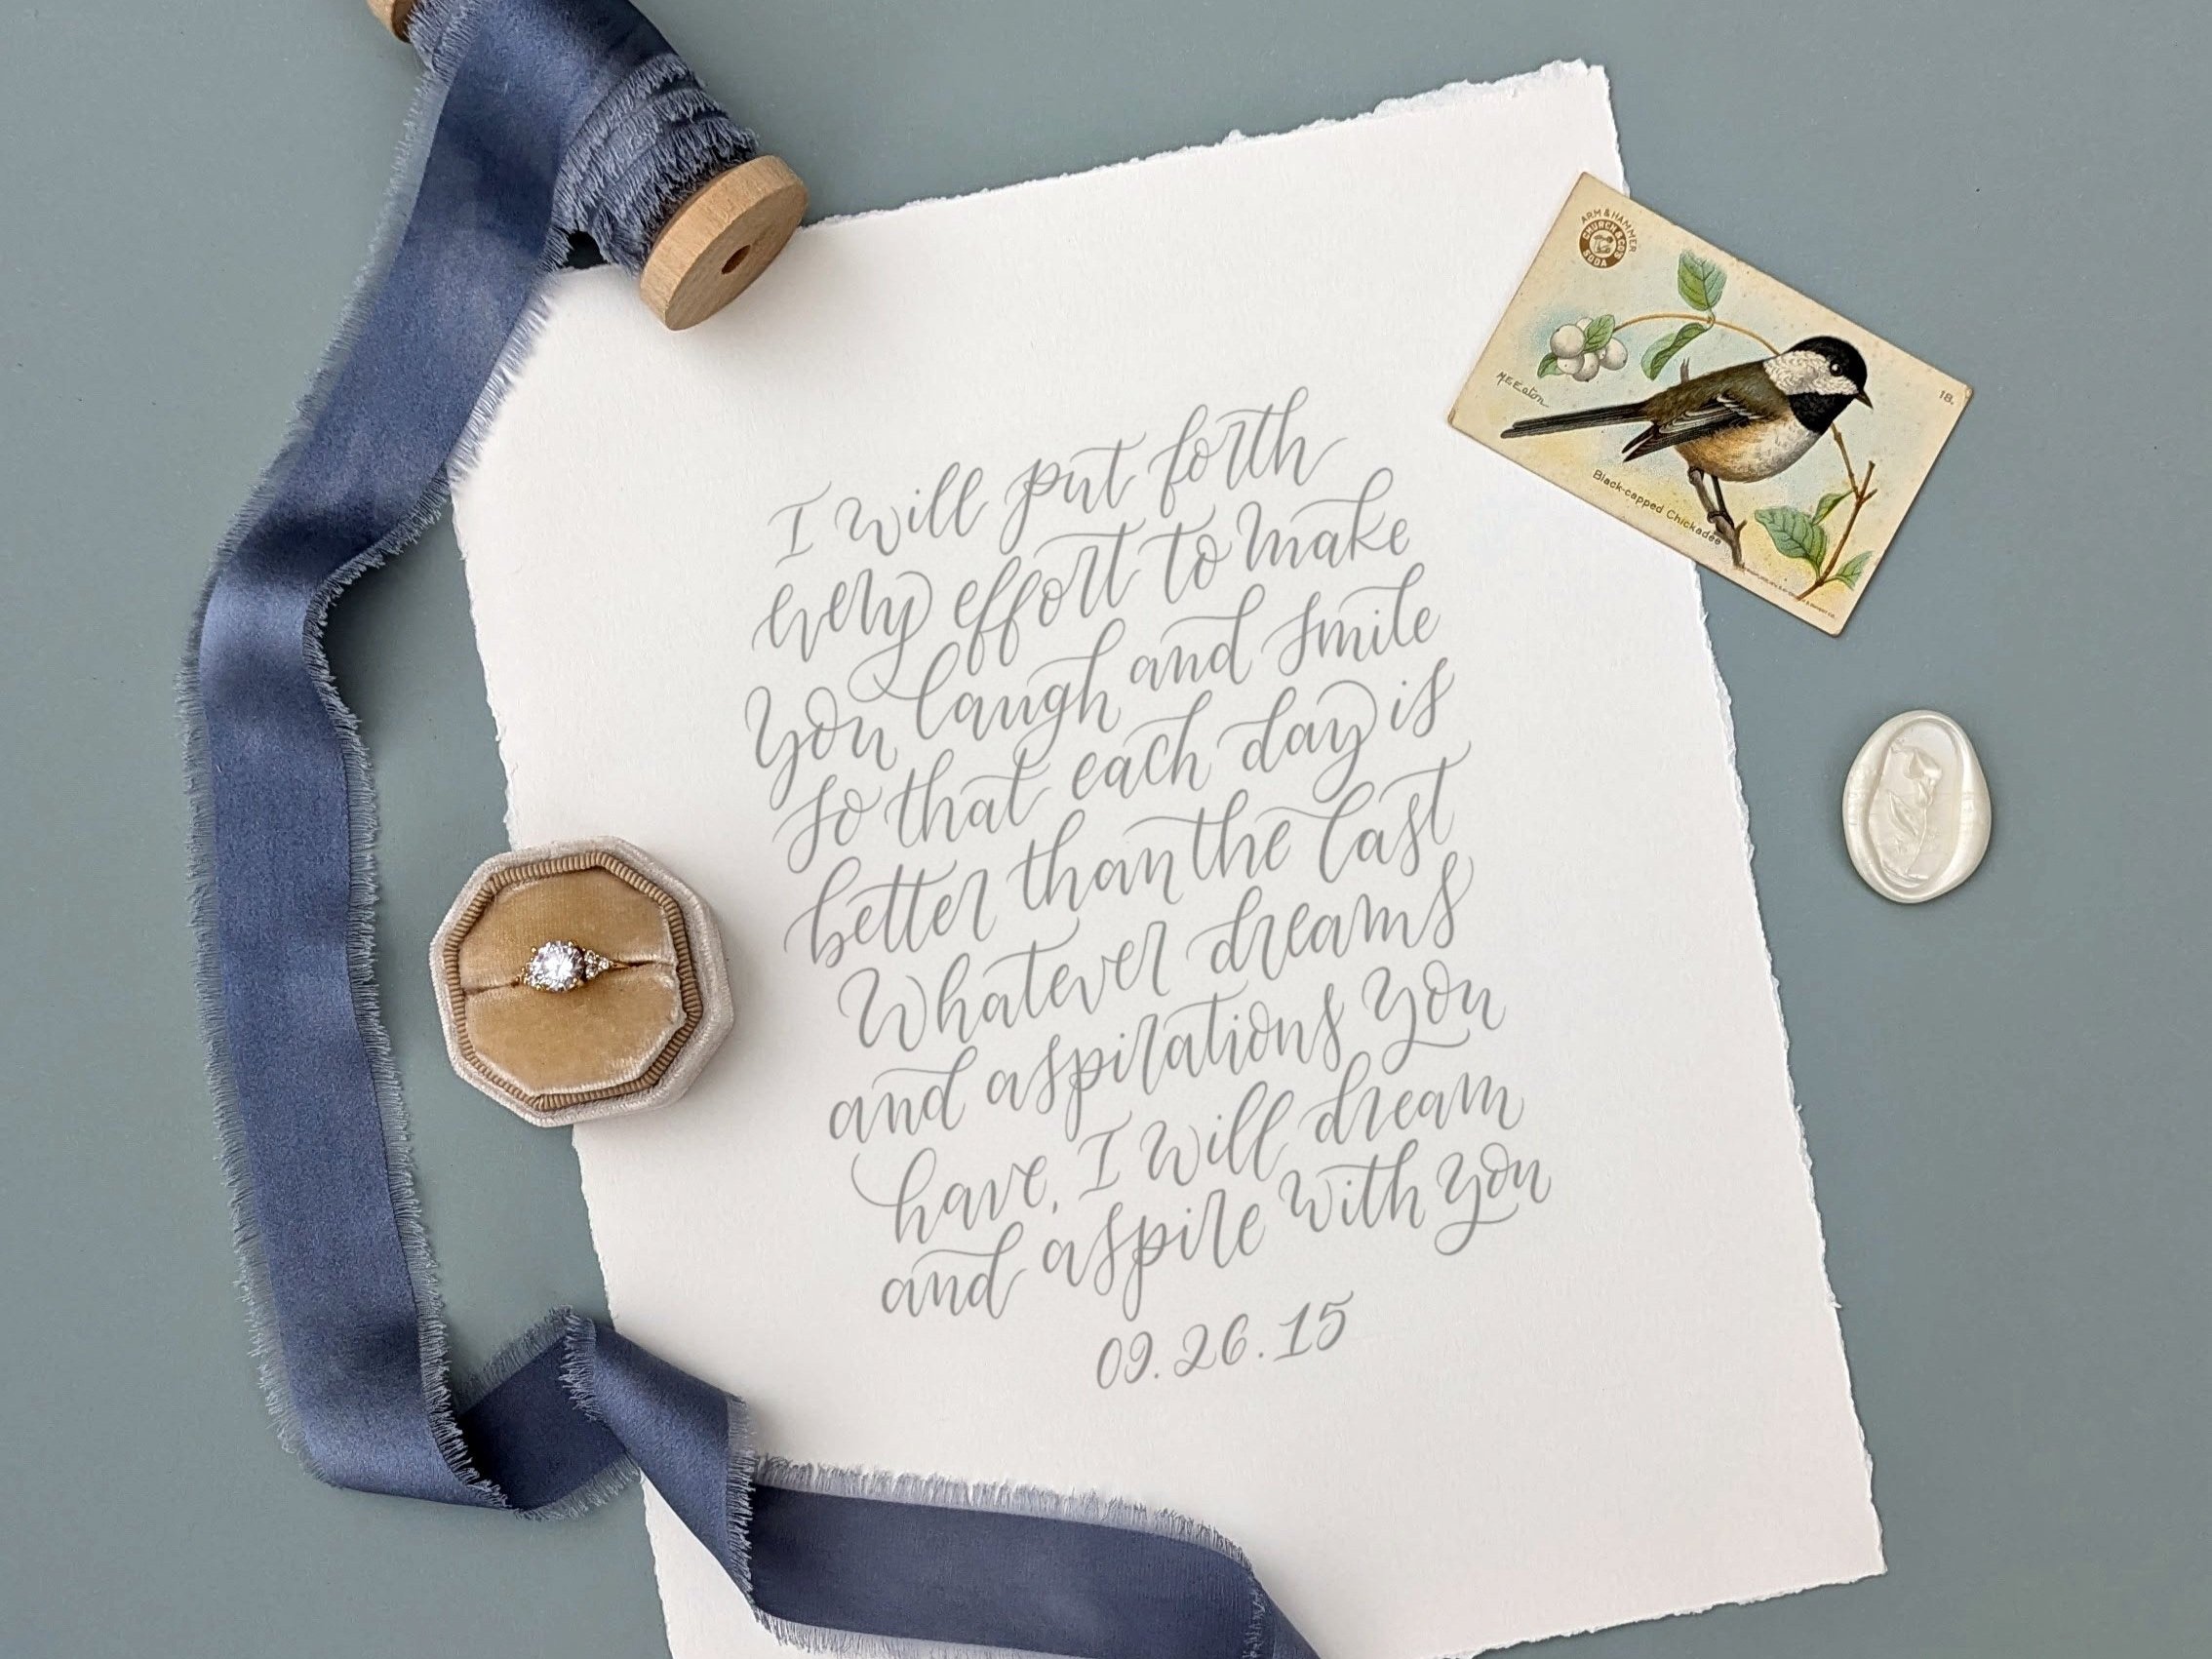 I will put forth
every effort to make
you laugh and smile
so that each day is
better than the last
Whatever dreams
and aspirations you
have, I will dream
and aspire with you
09.26.15
ARM & HAMMER
CHURCH & CO'S
SODA
M.E. Eaton
18.
Black-capped Chickadee